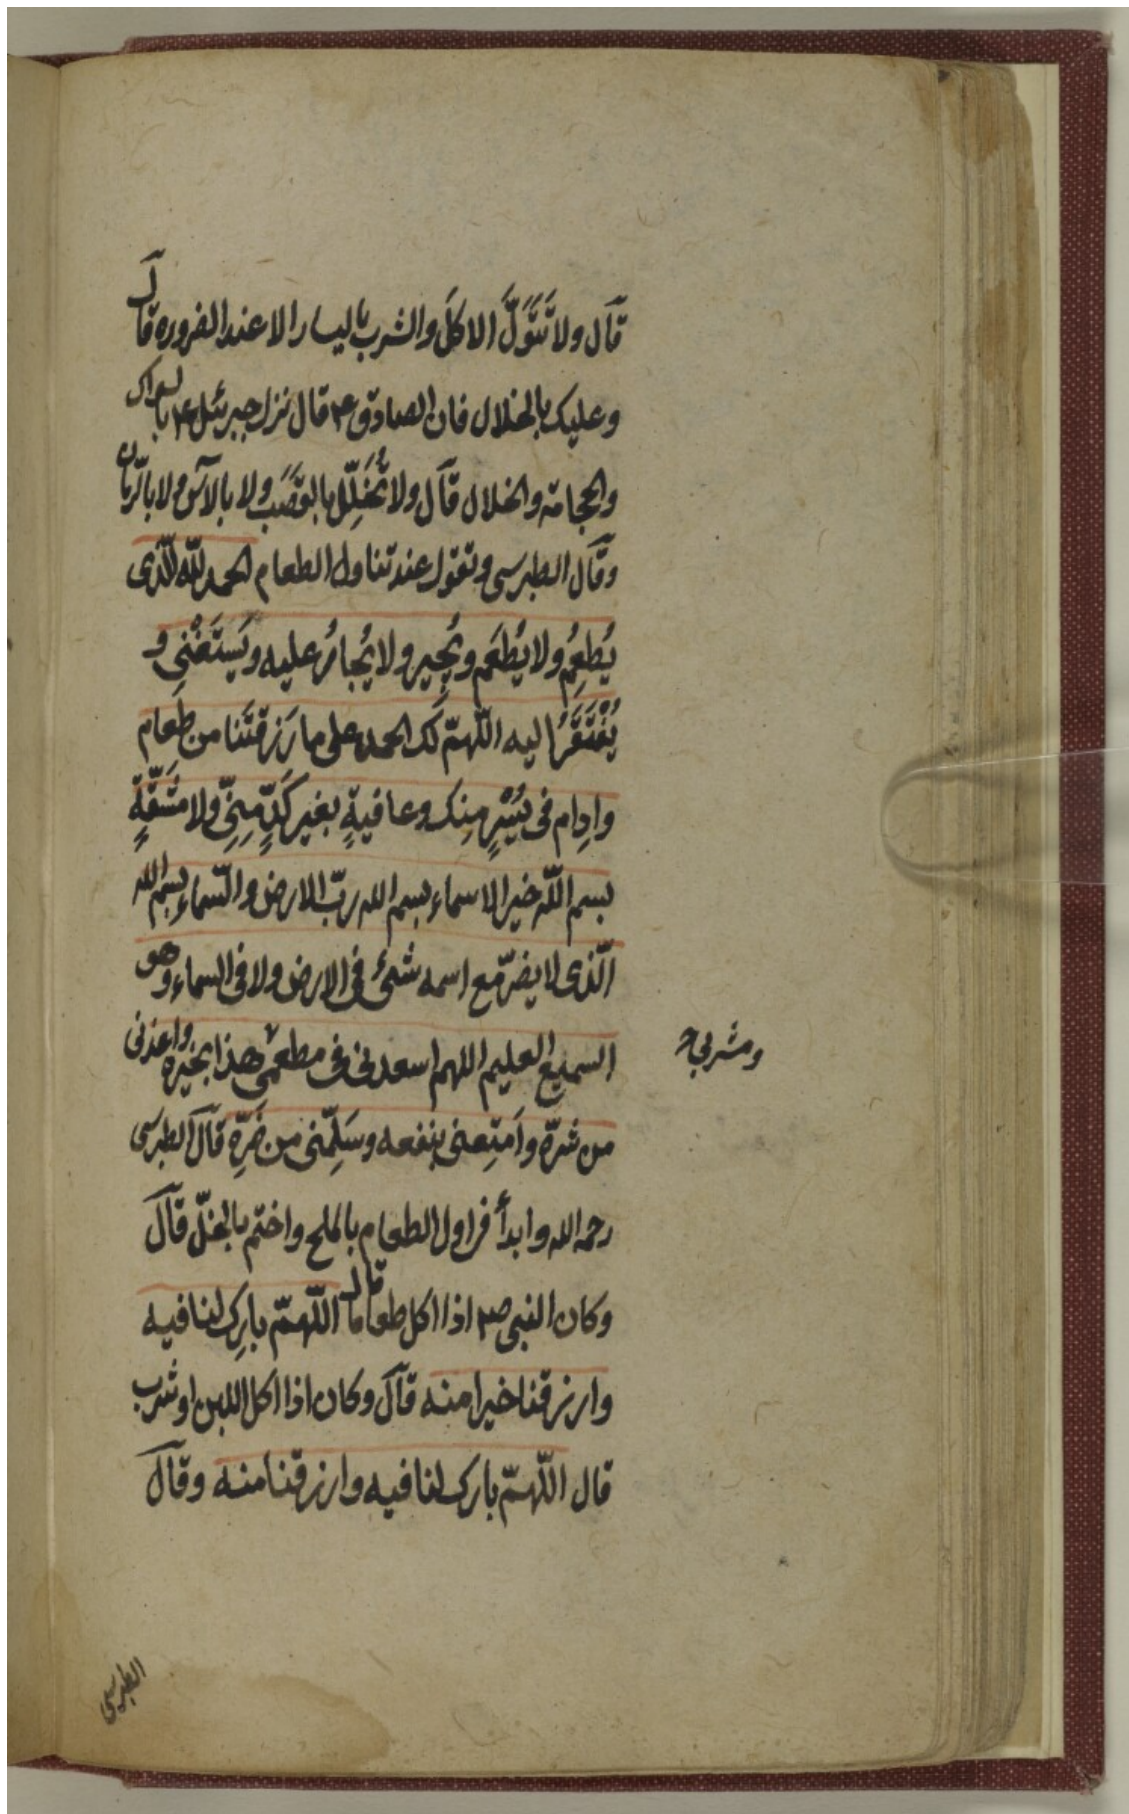 قال ولا تتول الاكل والشرب باليسار الا عند الضروره قال
وعليك بالخلال فان الصادق ع قال نزل جبرئيل ع بالسواك
والحجامة والخلال قال ولا تُخلّل بالقصب ولا بالآس ولا بالرّمان
وقال الطبرسي وتقول عند تناول الطعام الحمد للّه الّذى
يُطعِمُ ولا يُطعَم ويُجير ولا يُجارُ عليه ويَستَغني و
يُفتَقَرُ اليه اللّهمّ لَك الحمد على ما رَزقتَنا من طعام
وادِام فى يُسْرٍ مِنك وعافيةٍ بغير كَدٍّ مِنِّي ولا مشَقّةٍ
بسم اللّه خير الاسماء بسم الله ربّ الارض والسّماء بسم الله
الّذى لا يضرّ مع اسمه شئ فى الارض ولا فى السماء وهو
السميع العليم اللهم اسعدنى فى مطعمى هذا بخيره واعذنى
ومشربي
من شرّه واَمتِعنى بنفعه وسَلِّمنى من ضَرِّه قال الطبرسى
رحمه الله وابدأ فى اول الطعام بالملح واختم بالخلّ قال
وكان النبى ص اذا اكل طعاما قال اللّهمّ بارِك لنا فيه
وارزقنا خيرا منه قال وكان اذا اكل اللبن او شرب
قال اللّهمّ بارك لنا فيه وارزقنا منه وقال
الطبرسى